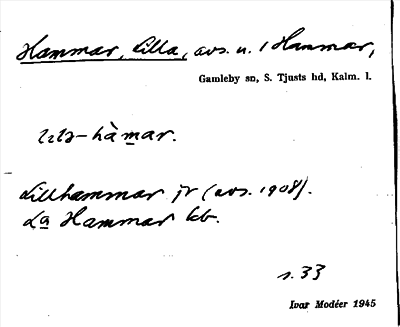 Hammar, Lilla, avs. u. 1 Hammar,
Gamleby sn, S. Tjusts hd, Kalm. l.
hàmar.
Lillhammar jr (avs. 1908).
La Hammar kb.
s. 33
Ivar Modéer 1945